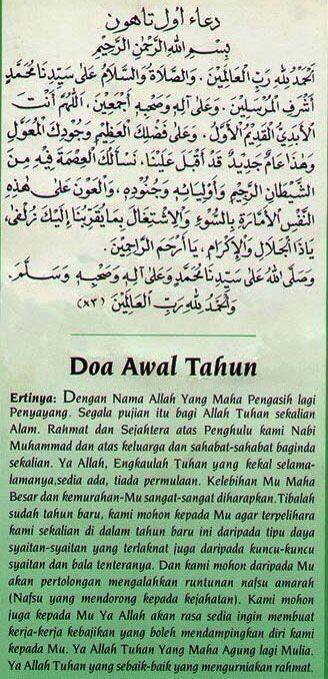 دعاء اول تاهون
بِسْمِ اللهِ الرَّحْمٰنِ الرَّحِيْمِ
اَلْحَمْدُ لِلّٰهِ رَبِّ الْعَالَمِيْنَ. وَالصَّلَاةُ وَالسَّلَامُ عَلَى سَيِّدِنَا مُحَمَّدٍ
أَشْرَفِ الْمُرْسَلِيْنَ. وَعَلَى آلِهِ وَصَحْبِهِ أَجْمَعِيْنَ. اَللّٰهُمَّ أَنْتَ
الْأَبَدِيُّ الْقَدِيْمُ الْأَوَّلُ. وَعَلَى فَضْلِكَ الْعَظِيْمِ وَجُوْدِكَ الْمُعَوَّلُ
وَهٰذَا عَامٌ جَدِيْدٌ قَدْ أَقْبَلَ عَلَيْنَا. نَسْأَلُكَ الْعِصْمَةَ فِيْهِ مِنَ
الشَّيْطَانِ الرَّجِيْمِ وَأَوْلِيَائِهِ وَجُنُوْدِهِ. وَالْعَوْنَ عَلَى هٰذِهِ
النَّفْسِ الْأَمَّارَةِ بِالسُّوْءِ وَالْاِشْتِغَالَ بِمَا يُقَرِّبُنَا إِلَيْكَ زُلْفَى،
يَاذَا الْجَلَالِ وَالْإِكْرَامِ. يَا أَرْحَمَ الرَّاحِمِيْنَ.
وَصَلَّى اللهُ عَلَى سَيِّدِنَا مُحَمَّدٍ وَعَلَى آلِهِ وَصَحْبِهِ وَسَلَّمَ.
وَالْحَمْدُ لِلّٰهِ رَبِّ الْعَالَمِيْنَ (٣×)
Doa Awal Tahun
Ertinya: Dengan Nama Allah Yang Maha Pengasih lagi
Penyayang. Segala pujian itu bagi Allah Tuhan sekalian
Alam. Rahmat dan Sejahtera atas Penghulu kami Nabi
Muhammad dan atas keluarga dan sahabat-sahabat baginda
sekalian. Ya Allah, Engkaulah Tuhan yang kekal selama-
lamanya,sedia ada, tiada permulaan. Kelebihan Mu Maha
Besar dan kemurahan-Mu sangat-sangat diharapkan.Tibalah
sudah tahun baru, kami mohon kepada Mu agar terpelihara
kami sekalian di dalam tahun baru ini daripada tipu daya
syaitan-syaitan yang terlaknat juga daripada kuncu-kuncu
syaitan dan bala tenteranya. Dan kami mohon daripada Mu
akan pertolongan mengalahkan runtunan nafsu amarah
(Nafsu yang mendorong kepada kejahatan). Kami mohon
juga kepada Mu Ya Allah akan rasa sedia ingin membuat
kerja-kerja kebajikan yang boleh mendampingkan diri kami
kepada Mu. Ya Allah Tuhan Yang Maha Agung lagi Mulia.
Ya Allah Tuhan yang sebaik-baik yang mengurniakan rahmat.